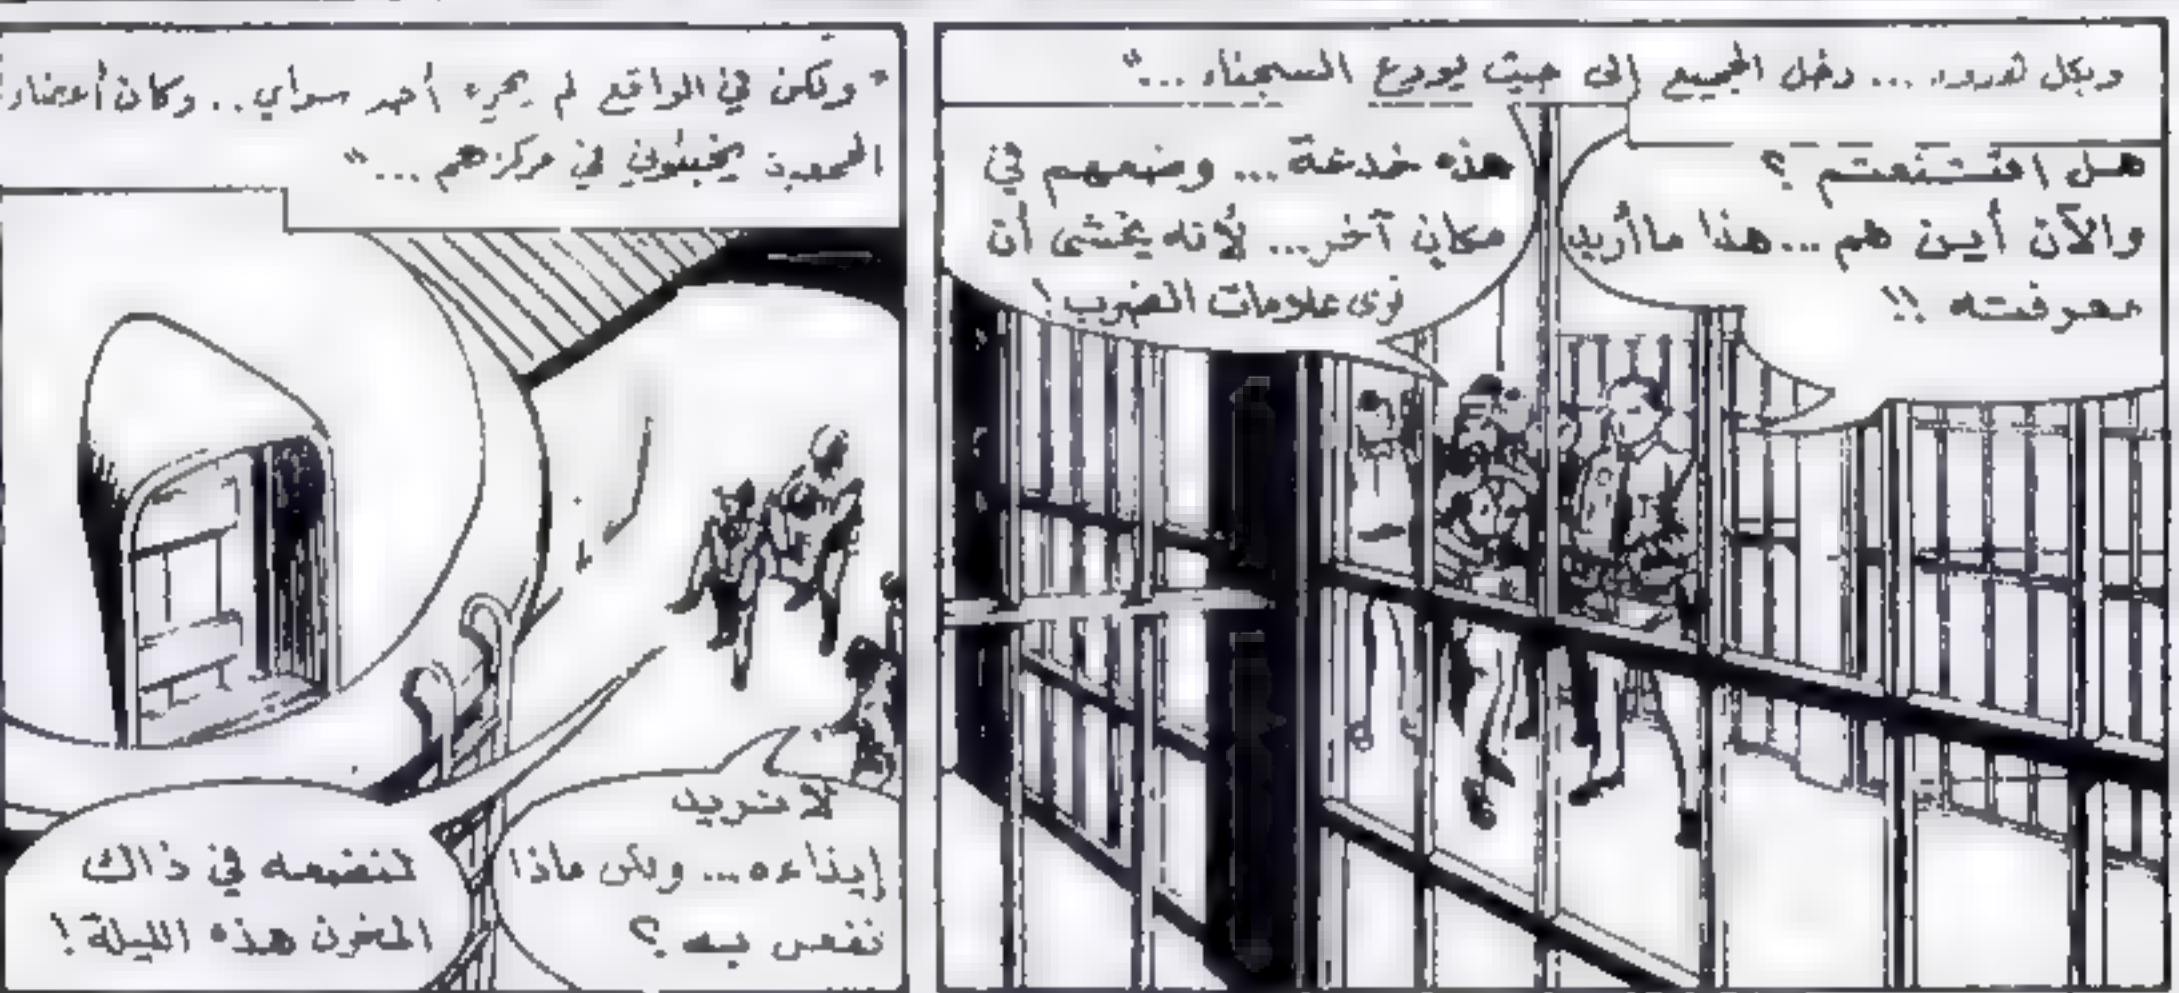 وبكل هدوء ... دخل الجميع إلى حيث يودع السجناء ..."
هل اقتنعتم ؟
والآن أين هم ... هذا ما أريد
معرفته !!
هذه خدعة ... وضعهم في
مكان آخر ... لأنه يخشى أن
نرى علامات الضرب !
" ولكن في الواقع لم يحره أحد سواي .. وكان أعضاء
العصبة يختبئون في مركزهم ..."
لا نريد
إيذاءه ... ولكن ماذا
نفعل به ؟
لنضعه في ذاك
المخزن هذه الليلة !